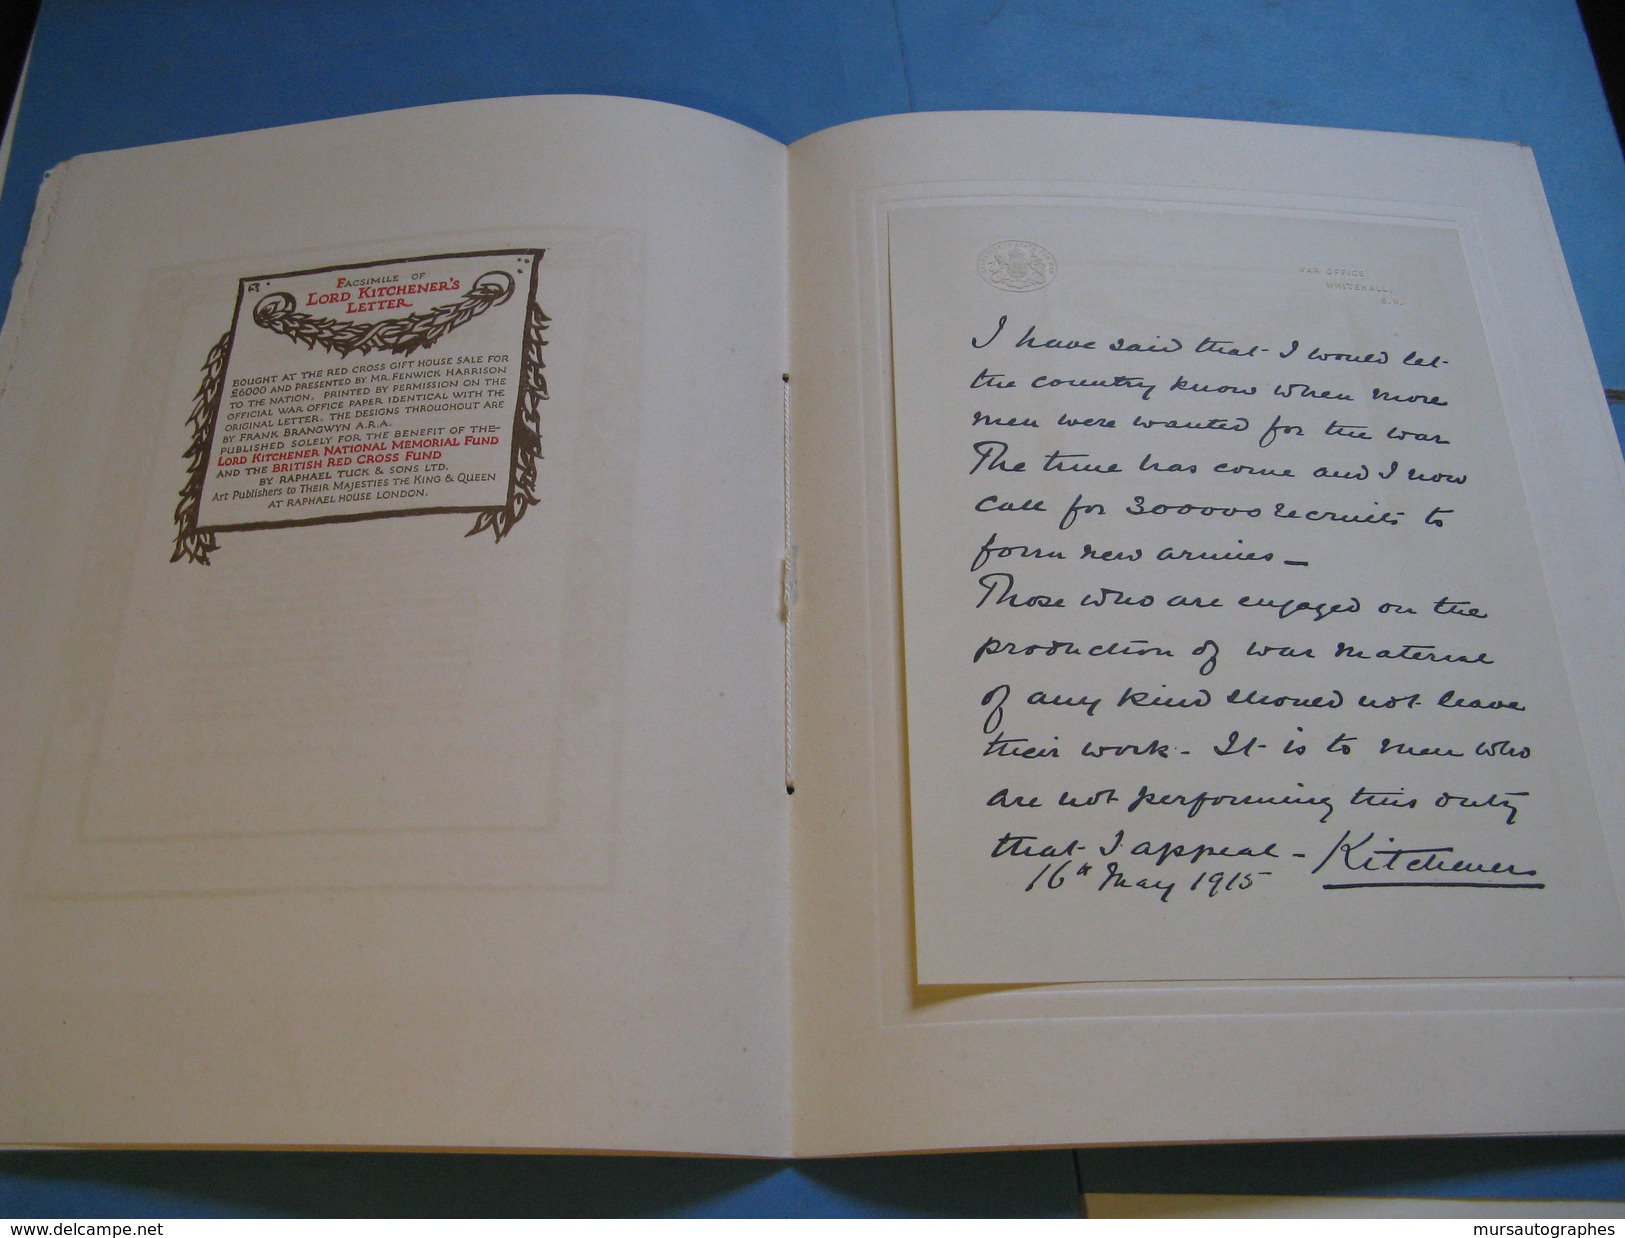 FACSIMILE OF
LORD KITCHENER'S
LETTER
BOUGHT AT THE RED CROSS GIFT HOUSE SALE FOR
£6000 AND PRESENTED BY MR. FENWICK HARRISON
TO THE NATION. PRINTED BY PERMISSION ON THE
OFFICIAL WAR OFFICE PAPER IDENTICAL WITH THE
ORIGINAL LETTER. THE DESIGNS THROUGHOUT ARE
BY FRANK BRANGWYN A.R.A.
PUBLISHED SOLELY FOR THE BENEFIT OF THE
LORD KITCHENER NATIONAL MEMORIAL FUND
AND THE BRITISH RED CROSS FUND
BY RAPHAEL TUCK & SONS LTD.
Art Publishers to Their Majesties the King & Queen
AT RAPHAEL HOUSE LONDON.
WAR OFFICE,
WHITEHALL,
S.W.
I have said that I would let
the country know when more
men were wanted for the war
The time has come and I now
call for 300000 recruits to
form new armies —
Those who are engaged on the
production of war material
of any kind should not leave
their work - It is to men who
are not performing this duty
that I appeal - Kitchener
16th May 1915
www.delcampe.net
mursautographes